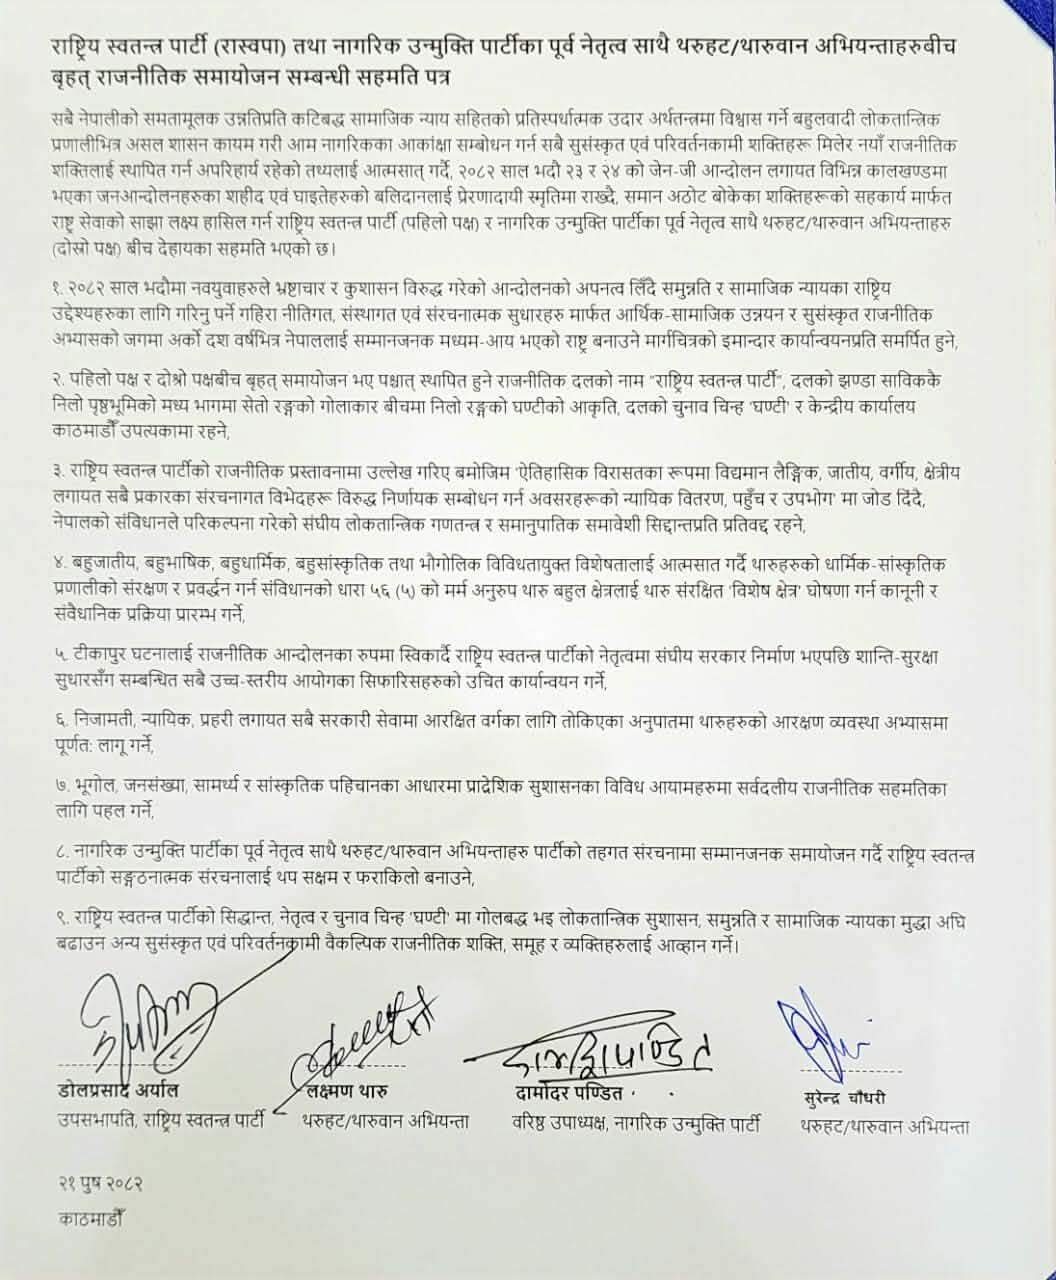 राष्ट्रिय स्वतन्त्र पार्टी (रास्वपा) तथा नागरिक उन्मुक्ति पार्टीका पूर्व नेतृत्व साथै थरुहट/थारुवान अभियन्ताहरुबीच
बृहत् राजनीतिक समायोजन सम्बन्धी सहमति पत्र
सबै नेपालीको समतामूलक उन्नतिप्रति कटिबद्ध सामाजिक न्याय सहितको प्रतिस्पर्धात्मक उदार अर्थतन्त्रमा विश्वास गर्ने बहुलवादी लोकतान्त्रिक
प्रणालीभित्र असल शासन कायम गरी आम नागरिकका आकांक्षा सम्बोधन गर्न सबै सुसंस्कृत एवं परिवर्तनकामी शक्तिहरू मिलेर नयाँ राजनीतिक
शक्तिलाई स्थापित गर्न अपरिहार्य रहेको तथ्यलाई आत्मसात् गर्दे, २०८२ साल भदौ २३ र २४ को जेन-जी आन्दोलन लगायत विभिन्न कालखण्डमा
भएका जनआन्दोलनहरुका शहीद एवं घाइतेहरुको बलिदानलाई प्रेरणादायी स्मृतिमा राख्दै, समान अठोट बोकेका शक्तिहरूको सहकार्य मार्फत
राष्ट्र सेवाको साझा लक्ष्य हासिल गर्न राष्ट्रिय स्वतन्त्र पार्टी (पहिलो पक्ष) र नागरिक उन्मुक्ति पार्टीका पूर्व नेतृत्व साथै थरुहट/थारुवान अभियन्ताहरु
(दोस्रो पक्ष) बीच देहायका सहमति भएको छ।
१. २०८२ साल भदौमा नवयुवाहरुले भ्रष्टाचार र कुशासन विरुद्ध गरेको आन्दोलनको अपनत्व लिँदै समुन्नति र सामाजिक न्यायका राष्ट्रिय
उद्देश्यहरुका लागि गरिनु पर्ने गहिरा नीतिगत, संस्थागत एवं संरचनात्मक सुधारहरु मार्फत आर्थिक-सामाजिक उन्नयन र सुसंस्कृत राजनीतिक
अभ्यासको जगमा अर्को दश वर्षभित्र नेपाललाई सम्मानजनक मध्यम-आय भएको राष्ट्र बनाउने मार्गचित्रको इमान्दार कार्यान्वयनप्रति समर्पित हुने,
२. पहिलो पक्ष र दोश्रो पक्षबीच बृहत् समायोजन भए पश्चात् स्थापित हुने राजनीतिक दलको नाम "राष्ट्रिय स्वतन्त्र पार्टी", दलको झण्डा साविककै
निलो पृष्ठभूमिको मध्य भागमा सेतो रङ्गको गोलाकार बीचमा निलो रङ्गको घण्टीको आकृति, दलको चुनाव चिन्ह 'घण्टी' र केन्द्रीय कार्यालय
काठमाडौँ उपत्यकामा रहने,
३. राष्ट्रिय स्वतन्त्र पार्टीको राजनीतिक प्रस्तावनामा उल्लेख गरिए बमोजिम 'ऐतिहासिक विरासतका रूपमा विद्यमान लैङ्गिक, जातीय, वर्गीय, क्षेत्रीय
लगायत सबै प्रकारका संरचनागत विभेदहरू विरुद्ध निर्णायक सम्बोधन गर्न अवसरहरूको न्यायिक वितरण, पहुँच र उपभोग' मा जोड दिंदै,
नेपालको संविधानले परिकल्पना गरेको संघीय लोकतान्त्रिक गणतन्त्र र समानुपातिक समावेशी सिद्दान्तप्रति प्रतिवद्द रहने,
४. बहुजातीय, बहुभाषिक, बहुधार्मिक, बहुसांस्कृतिक तथा भौगोलिक विविधतायुक्त विशेषतालाई आत्मसात गर्दै थारुहरुको धार्मिक-सांस्कृतिक
प्रणालीको संरक्षण र प्रवर्द्धन गर्न संविधानको धारा ५६ (५) को मर्म अनुरुप थारु बहुल क्षेत्रलाई थारु संरक्षित 'विशेष क्षेत्र' घोषणा गर्न कानूनी र
संवैधानिक प्रक्रिया प्रारम्भ गर्ने,
५. टीकापुर घटनालाई राजनीतिक आन्दोलनका रुपमा स्विकार्दै राष्ट्रिय स्वतन्त्र पार्टीको नेतृत्वमा संघीय सरकार निर्माण भएपछि शान्ति-सुरक्षा
सुधारसँग सम्बन्धित सबै उच्च-स्तरीय आयोगका सिफारिसहरुको उचित कार्यान्वयन गर्ने,
६. निजामती, न्यायिक, प्रहरी लगायत सबै सरकारी सेवामा आरक्षित वर्गका लागि तोकिएका अनुपातमा थारुहरुको आरक्षण व्यवस्था अभ्यासमा
पूर्णत: लागू गर्ने,
७. भूगोल, जनसंख्या, सामर्थ्य र सांस्कृतिक पहिचानका आधारमा प्रादेशिक सुशासनका विविध आयामहरुमा सर्वदलीय राजनीतिक सहमतिका
लागि पहल गर्ने,
८. नागरिक उन्मुक्ति पार्टीका पूर्व नेतृत्व साथै थरुहट/थारुवान अभियन्ताहरु पार्टीको तहगत संरचनामा सम्मानजनक समायोजन गर्दै राष्ट्रिय स्वतन्त्र
पार्टीको सङ्गठनात्मक संरचनालाई थप सक्षम र फराकिलो बनाउने,
९. राष्ट्रिय स्वतन्त्र पार्टीको सिद्धान्त, नेतृत्व र चुनाव चिन्ह 'घण्टी' मा गोलबद्ध भइ लोकतान्त्रिक सुशासन, समुन्नति र सामाजिक न्यायका मुद्धा अघि
बढाउन अन्य सुसंस्कृत एवं परिवर्तनकामी वैकल्पिक राजनीतिक शक्ति, समूह र व्यक्तिहरुलाई आव्हान गर्ने।
दामोदर पण्डित
डोलप्रसाद अर्याल लक्ष्मण थारु दामोदर पण्डित सुरेन्द्र चौधरी
उपसभापति, राष्ट्रिय स्वतन्त्र पार्टी थरुहट/थारुवान अभियन्ता वरिष्ठ उपाध्यक्ष, नागरिक उन्मुक्ति पार्टी थरुहट/थारुवान अभियन्ता
२१ पुष २०८२
काठमाडौँ